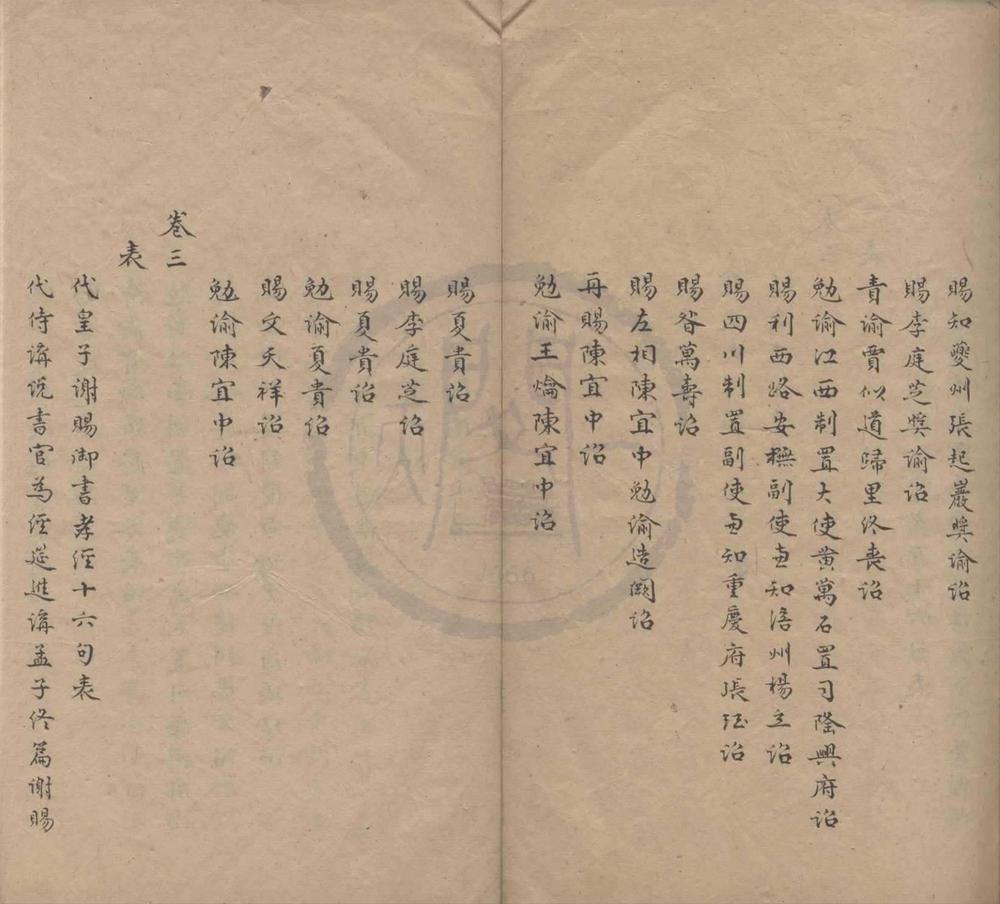 賜知夔州張起巖奬諭詔
賜李庭芝奬諭詔
責諭賈似道歸里終喪詔
勉諭江西制置大使黄萬石置司隆興府詔
賜利西路安撫副使兼知涪州楊立詔
賜四川制置副使兼知重慶府張珏詔
賜昝萬壽詔
賜左相陳宜中勉諭造闕詔
再賜陳宜中詔
勉諭王爚陳宜中詔
賜夏貴詔
賜李庭芝詔
賜夏貴詔
勉諭夏貴詔
賜文天祥詔
勉諭陳宜中詔
卷三
表
代皇子謝賜御書孝經十六句表
代侍講説書官為經筵進講孟子終篇謝賜